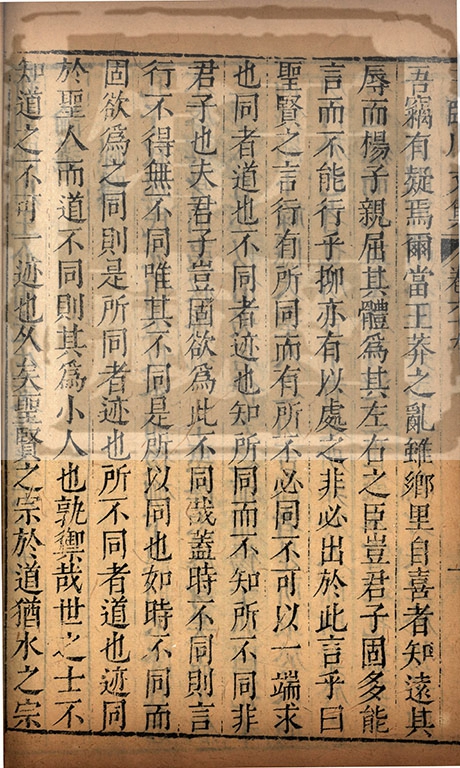 吾竊有疑焉爾當王莽之亂雖鄉里自喜者知遠其
辱而楊子親屈其體爲其左右之臣豈君子固多能
言而不能行乎抑亦有以處之非必出於此言乎曰
聖賢之言行有所同而有所不必同不可以一端求
也同者道也不同者迹也知所同而不知所不同非
君子也夫君子豈固欲爲此不同哉蓋時不同則言
行不得無不同唯其不同是所以同也如時不同而
固欲爲之同則是所同者迹也所不同者道也迹同
於聖人而道不同則其爲小人也孰禦哉世之士不
知道之不可一迹也久矣聖賢之宗於道猶水之宗